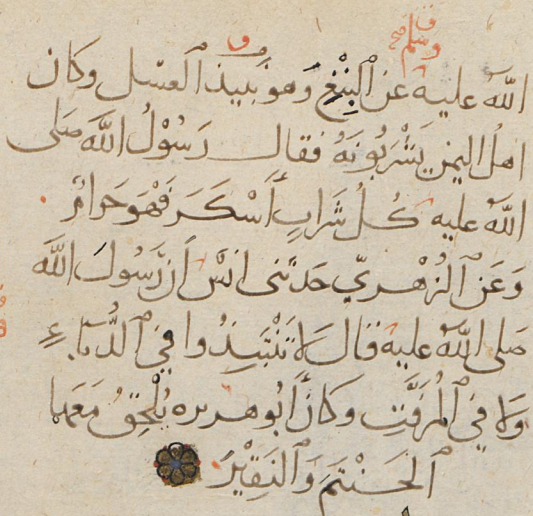 وسلم
الله عليه عن البتع وهو نبيذ العسل وكان
اهل اليمن يشربونه فقال رسول الله صلى
الله عليه كل شراب أسكر فهو حرام
وعن الزهري حدثني انس ان رسول الله
صلى الله عليه قال لا تنتبذوا في الدباء
ولا في المزفت وكان أبو هريره يلحق معها
الحنتم والنقير